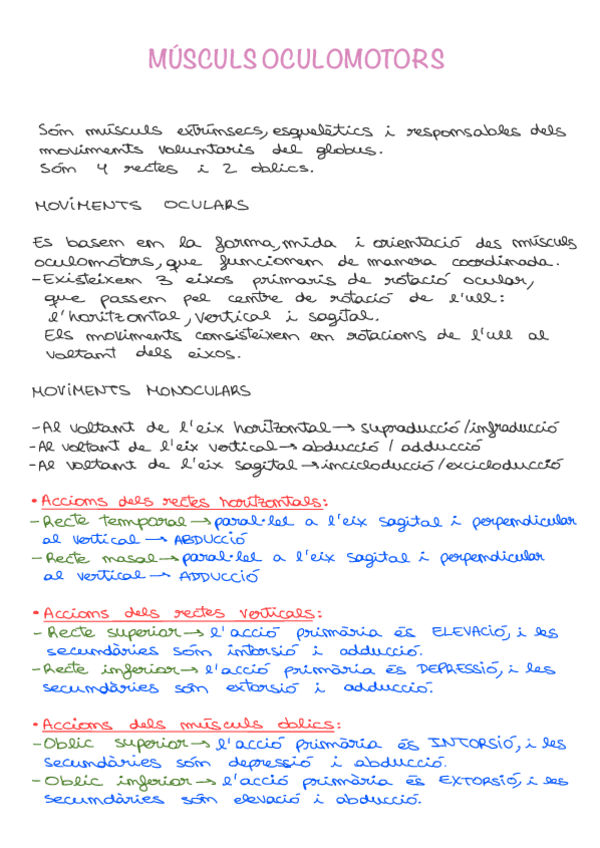 MÚSCULS OCULOMOTORS
Són músculs extrínsecs, esquelètics i responsables dels
moviments voluntaris del globus.
Són 4 rectes i 2 oblics.
MOVIMENTS OCULARS
Es basem en la forma, mida i orientació des músculs
oculomotors, que funcionem de manera coordinada.
-Existeixem 3 eixos primaris de rotació ocular,
que passem pel centre de rotació de l'ull:
l'horitzontal, vertical i sagital.
Els moviments consisteixem em rotacions de l'ull al
voltant dels eixos.
MOVIMENTS MONOCULARS
-Al voltant de l'eix horitzontal → supraducció/infraducció
-Al voltant de l'eix vertical → abducció / adducció
-Al voltant de l'eix sagital → incicloducció/excicloducció
• Accions dels rectes horitzontals:
-Recte temporal → paral·lel a l'eix sagital i perpendicular
al vertical → ABDUCCIÓ
-Recte nasal → paral·lel a l'eix sagital i perpendicular
al vertical → ADDUCCIÓ
• Accions dels rectes verticals:
- Recte superior → l'acció primària és ELEVACIÓ, i les
secundàries són intorsió i adducció.
-Recte inferior → l'acció primària és DEPRESSIÓ, i les
secundàries són extorsió i adducció.
• Accions dels músculs oblics:
-Oblic superior → l'acció primària és INTORSIÓ, i les
secundàries són depressió i abducció.
- Oblic inferior → l'acció primària és EXTORSIÓ, i les
secundàries són elevació i abducció.